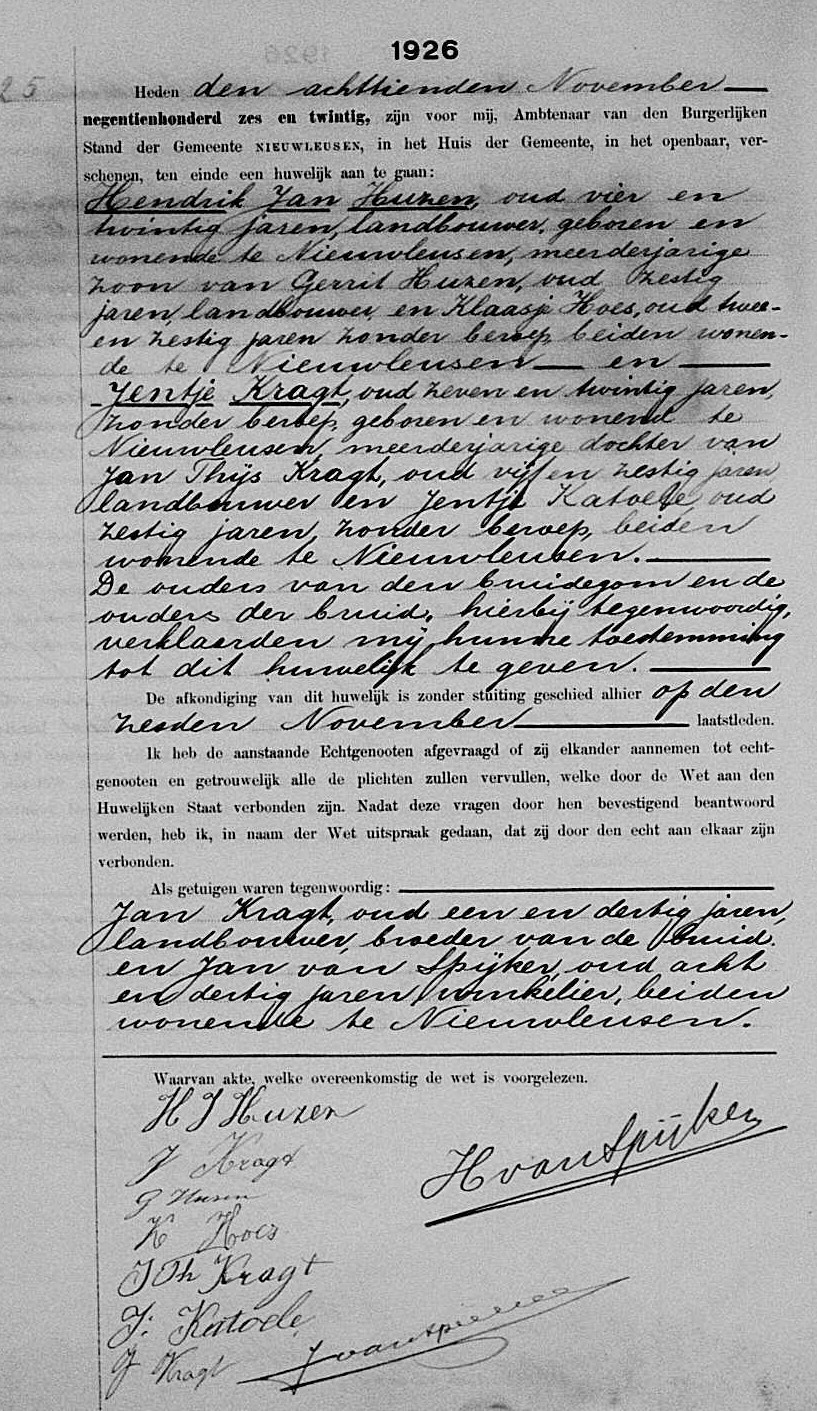 1926
25
Heden den achttienden November
negentienhonderd zes en twintig, zijn voor mij, Ambtenaar van den Burgerlijken
Stand der Gemeente NIEUWLEUSEN, in het Huis der Gemeente, in het openbaar, ver-
schenen, ten einde een huwelijk aan te gaan:
Hendrik Jan Huzen, oud vier en
twintig jaren, landbouwer, geboren en
wonende te Nieuwleusen, meerderjarige
zoon van Gerrit Huzen, oud zestig
jaren, landbouwer en Klaasje Hoes, oud twee-
en zestig jaren zonder beroep, beiden wonen-
de te Nieuwleusen — en —
Jentje Kragt, oud zeven en twintig jaren,
zonder beroep, geboren en wonend te
Nieuwleusen, meerderjarige dochter van
Jan Thijs Kragt, oud vijf en zestig jaren
landbouwer en Jentje Katoele, oud
zestig jaren, zonder beroep, beiden
wonende te Nieuwleusen.
De ouders van den bruidegom en de
ouders der bruid, hierbij tegenwoordig,
verklaarden mij hunne toestemming
tot dit huwelijk te geven.
De afkondiging van dit huwelijk is zonder stuiting geschied alhier op den
zesden November laatstleden.
Ik heb de aanstaande Echtgenooten afgevraagd of zij elkander aannemen tot echt-
genooten en getrouwelijk alle de plichten zullen vervullen, welke door de Wet aan den
Huwelijken Staat verbonden zijn. Nadat deze vragen door hen bevestigend beantwoord
werden, heb ik, in naam der Wet uitspraak gedaan, dat zij door den echt aan elkaar zijn
verbonden.
Als getuigen waren tegenwoordig:
Jan Kragt, oud een en dertig jaren,
landbouwer, broeder van de bruid.
en Jan van Spijker, oud acht
en dertig jaren, winkelier, beiden
wonende te Nieuwleusen.
Waarvan akte, welke overeenkomstig de wet is voorgelezen.
H J Huzen
J Kragt
H van Spijker
G Huzen
K Hoes
J Th Kragt
J: Katoele
J Kragt
J van Spijker